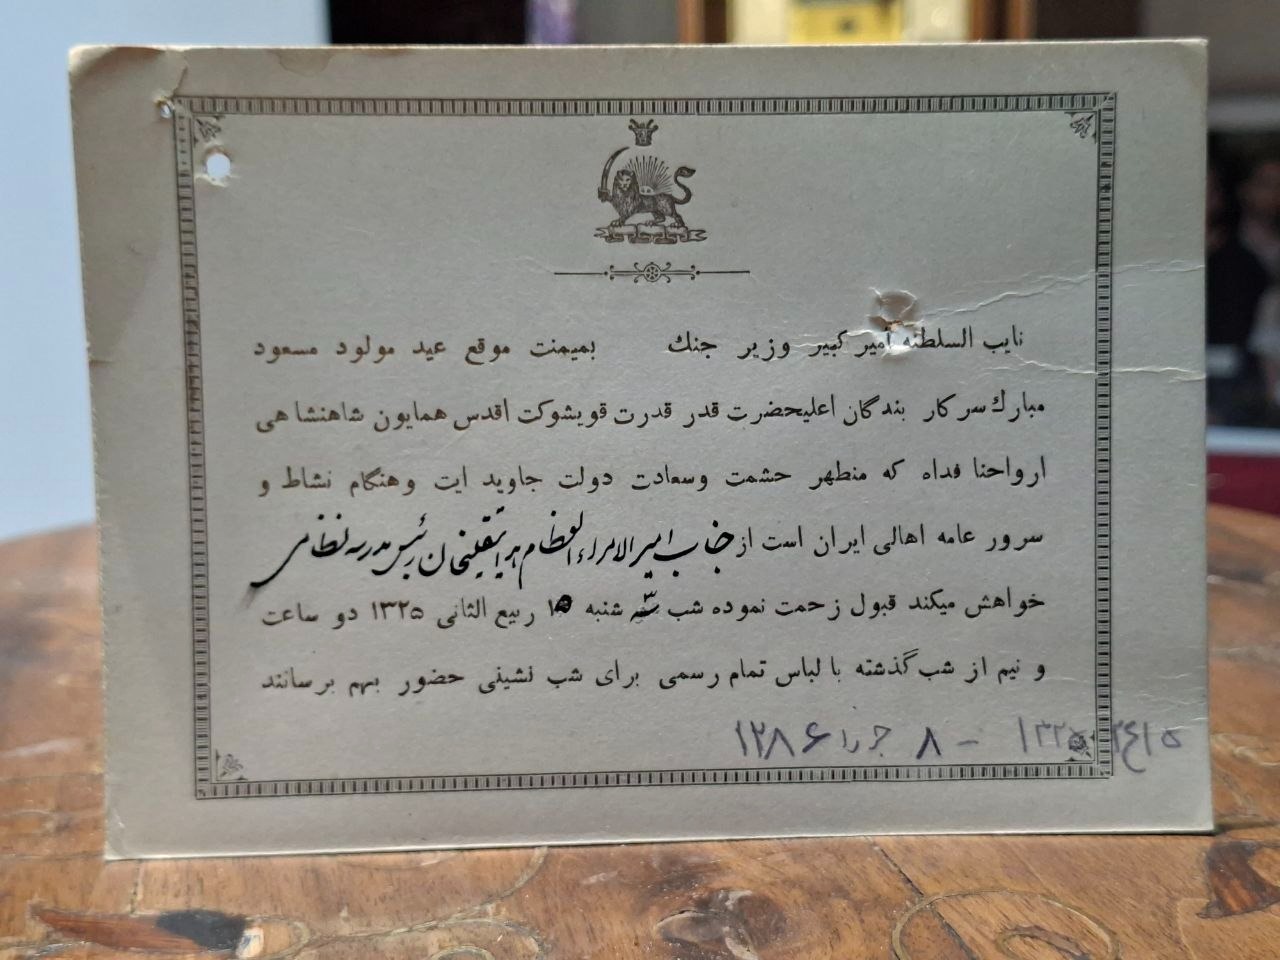 نایب السلطنه امیر کبیر وزیر جنك بمیمنت موقع عید مولود مسعود
مبارك سرکار بندگان اعلیحضرت قدر قدرت قویشوکت اقدس همایون شاهنشاهی
ارواحنا فداه که منطهر حشمت وسعادت دولت جاوید ایت وهنگام نشاط و
سرور عامه اهالی ایران است از جناب امیر الامراء العظام هدایتقلیخان رئیس مدرسه نظامی
خواهش میکند قبول زحمت نموده شب سه شنبه ۱۵ ربیع الثانی ۱۳۲۵ دو ساعت
و نیم از شب گذشته با لباس تمام رسمی برای شب نشینی حضور بهم برسانند
۱۳۲۵ - ۸ جوزا ۱۲۸۶